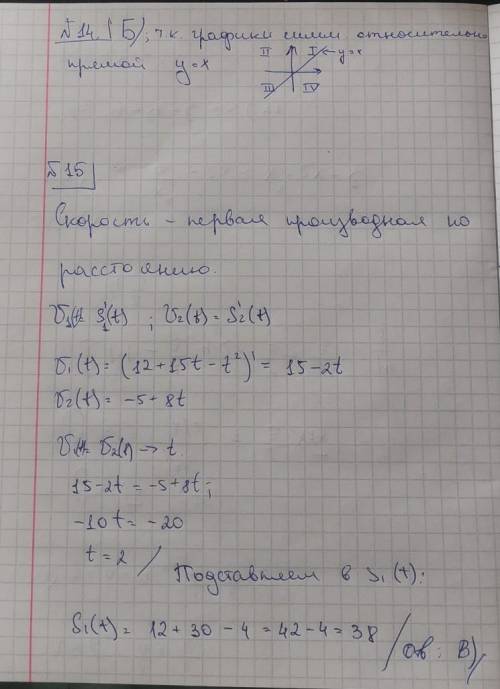 №14. Б) ; т.к. графики симм относительно
прямой y=x
II I ← y=x
III IV
№15
Скорость - первая производная по
расстоянию.
V₁(t)= S₁'(t) ; V₂(t) = S₂'(t)
V₁(t) = (12+15t-t²)' = 15-2t
V₂(t) = -5+8t
V₁(t)= V₂(t) → t.
15-2t = -5+8t;
-10t = -20
t = 2 / Подставляем в S₁(t):
S₁(t) = 12+30-4=42-4=38 / Отв: В)